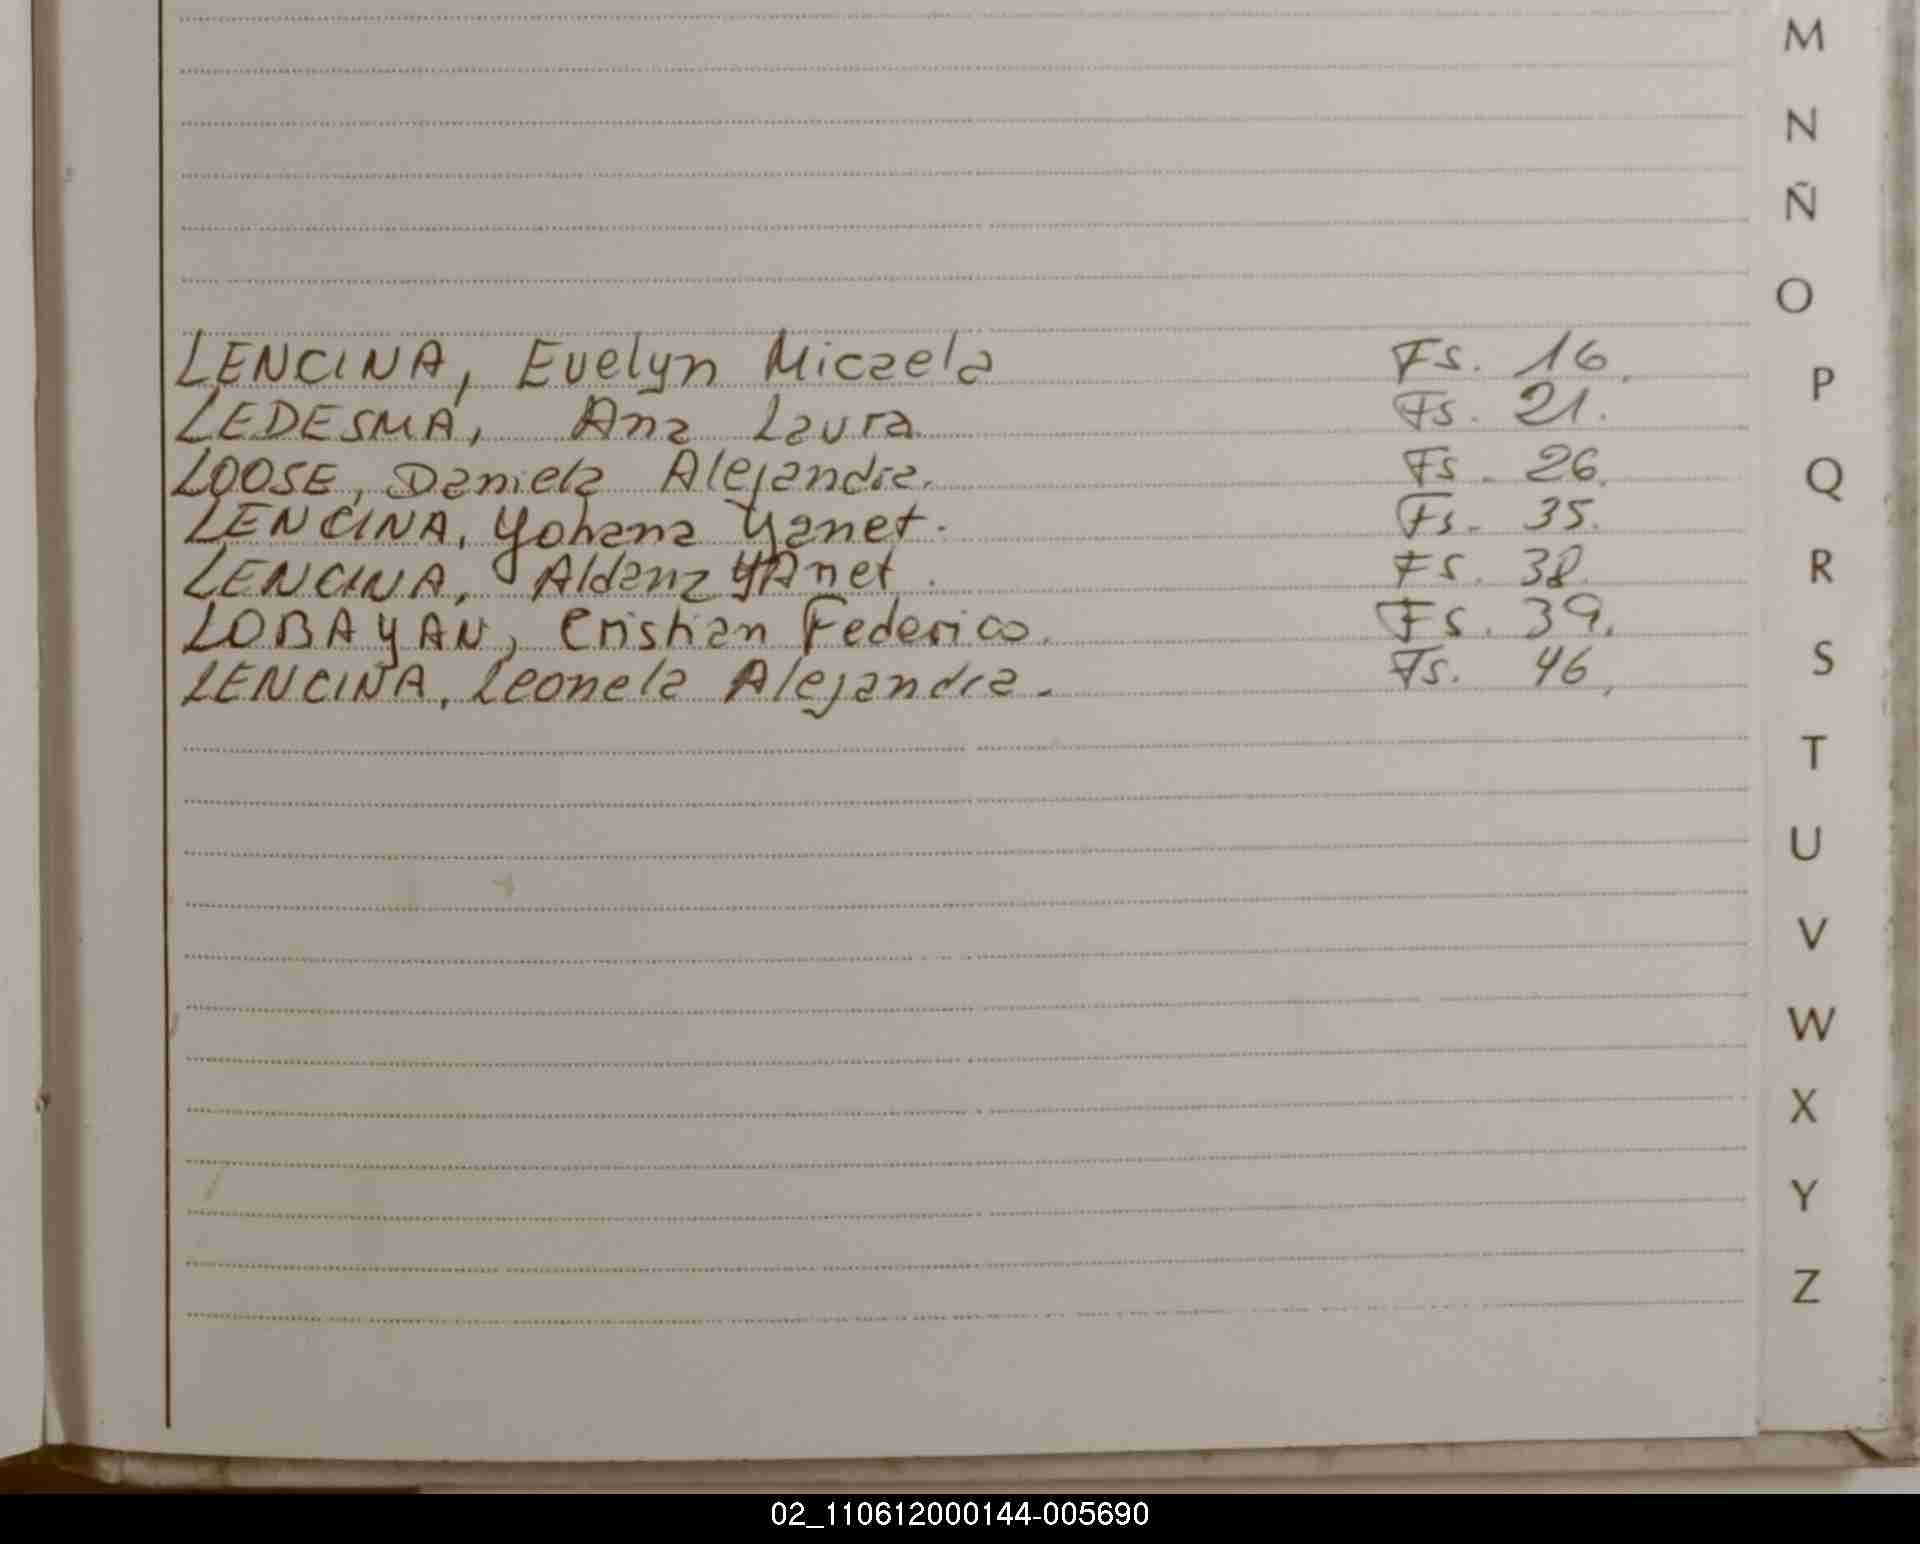 LENCINA, Evelyn Micaela Fs. 16.
LEDESMA, Ana Laura. Fs. 21.
LOOSE, Daniela Alejandra. Fs. 26.
LENCINA, Yohana Yanet. Fs. 35.
LENCINA, Aldana YAnet. Fs. 38.
LOBAYAN, Cristian Federico. Fs. 39.
LENCINA, Leonela Alejandra. Fs. 46.
M
N
Ñ
O
P
Q
R
S
T
U
V
W
X
Y
Z
02_110612000144-005690